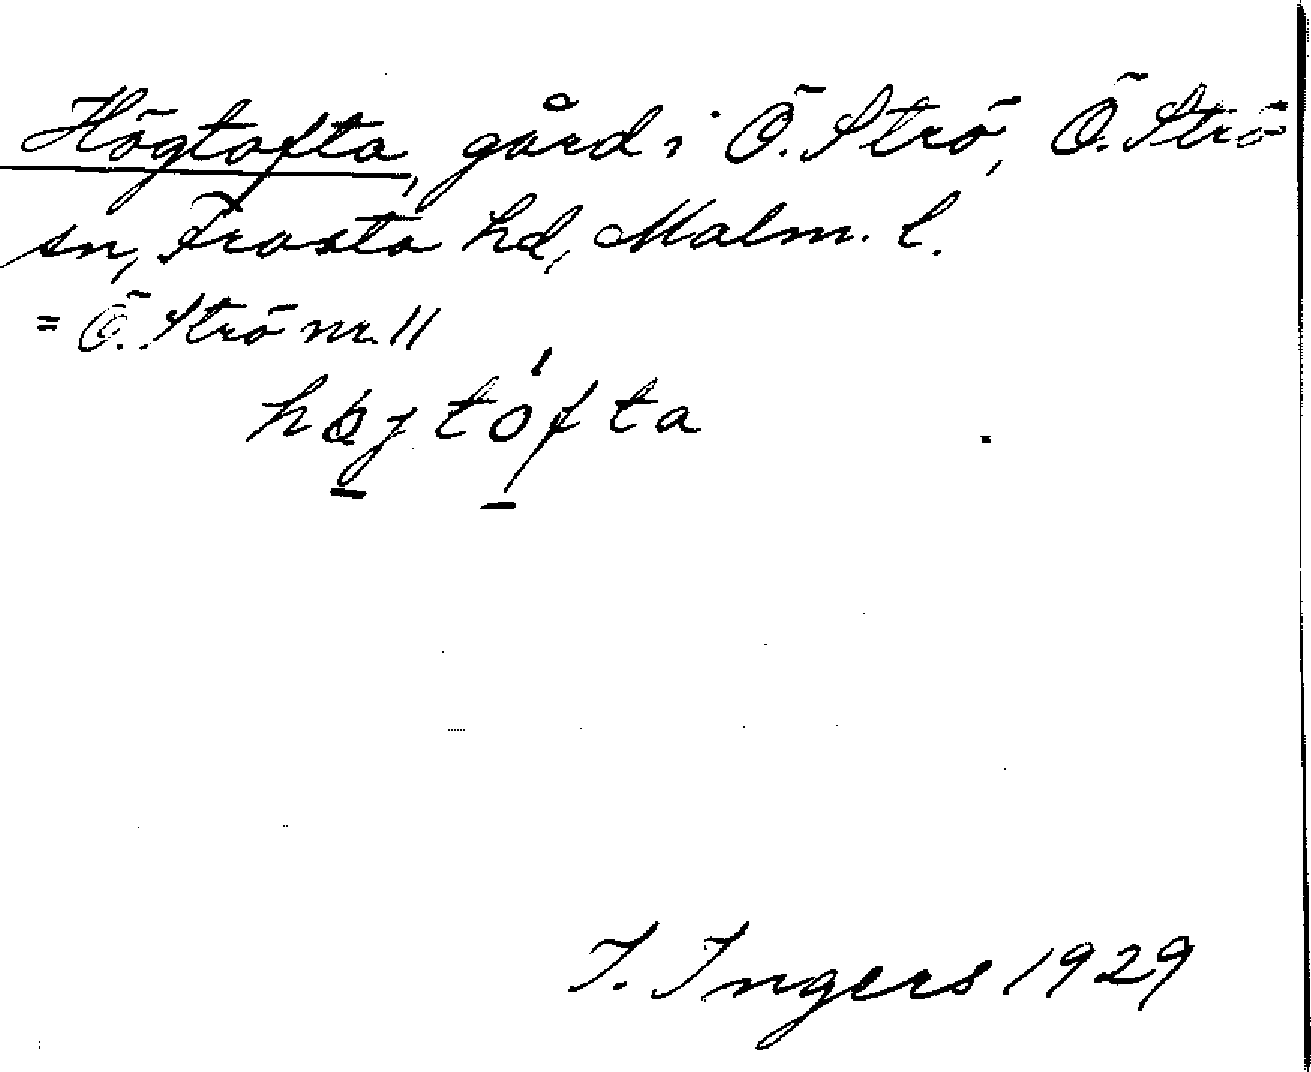 Högtofta, gård i Ö. Strö, Ö. Strö
sn, Frosta hd, Malm. l.
= Ö. Strö nr. 11
høgtófta
I. Ingers 1929